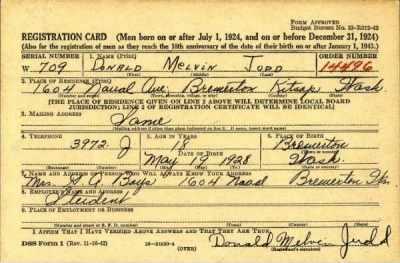 FORM APPROVED
Budget Bureau No. 33-R012-43
REGISTRATION CARD (Men born on or after July 1, 1924, and on or before December 31, 1924)
(Also for the registration of men as they reach the 18th anniversary of the date of their birth on or after January 1, 1943.)
SERIAL NUMBER 1. NAME (Print) ORDER NUMBER
W 709 DONALD MELVIN JUDD 14496
(First) (Middle) (Last)
2. PLACE OF RESIDENCE (Print)
1604 Naval Ave. Bremerton Kitsap Wash.
(Number and street) (Town, township, village, or city) (County) (State)
[THE PLACE OF RESIDENCE GIVEN ON LINE 2 ABOVE WILL DETERMINE LOCAL BOARD
JURISDICTION; LINE 2 OF REGISTRATION CERTIFICATE WILL BE IDENTICAL]
3. MAILING ADDRESS
Same
[Mailing address if other than place indicated on line 2. If same, insert word same]
4. TELEPHONE 5. AGE IN YEARS 6. PLACE OF BIRTH
3972 J 18 Bremerton
DATE OF BIRTH
May 19 1928 Wash.
(Exchange) (Number) (Mo.) (Day) (Yr.) (State or country)
7. NAME AND ADDRESS OF PERSON WHO WILL ALWAYS KNOW YOUR ADDRESS
Mrs. 1604 Naval Bremerton Wn.
8. EMPLOYER'S NAME AND ADDRESS
Student
9. PLACE OF EMPLOYMENT OR BUSINESS
(Number and street or R. F. D. number) (Town) (County) (State)
I AFFIRM THAT I HAVE VERIFIED ABOVE ANSWERS AND THAT THEY ARE TRUE.
DSS Form 1 (Rev. 11-16-42) 16-21630-4 (OVER) Donald Melvin Judd
(Registrant's signature)